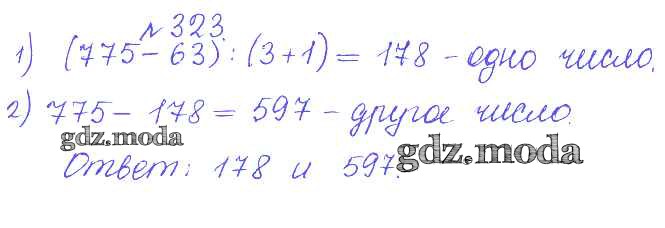 № 323.
1) (775 - 63) : (3 + 1) = 178 - одно число.
2) 775 - 178 = 597 - другое число.
gdz.moda
Ответ: 178 и 597.
gdz.moda